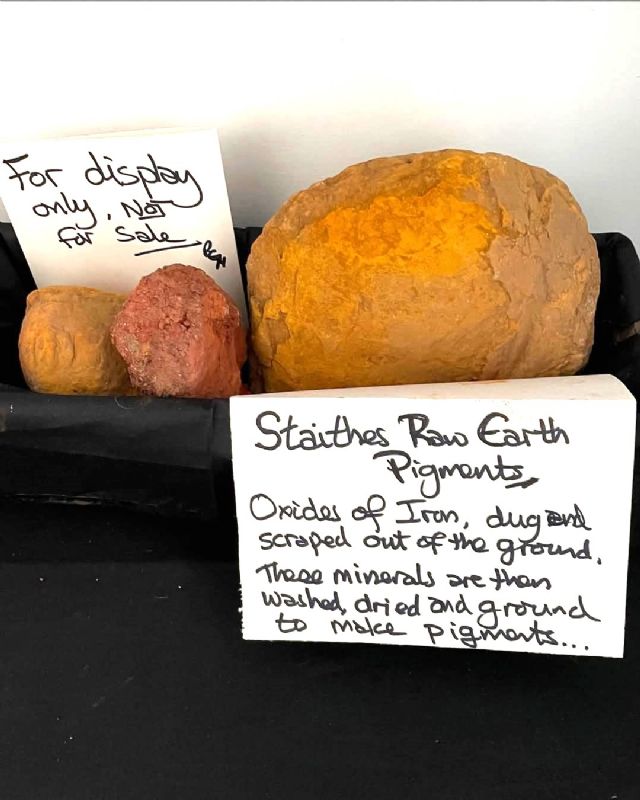 For display
only, NOT
for Sale
Staithes Raw Earth
Pigments
Oxides of Iron, dug and
scraped out of the ground.
These minerals are then
washed, dried and ground
to make pigments...